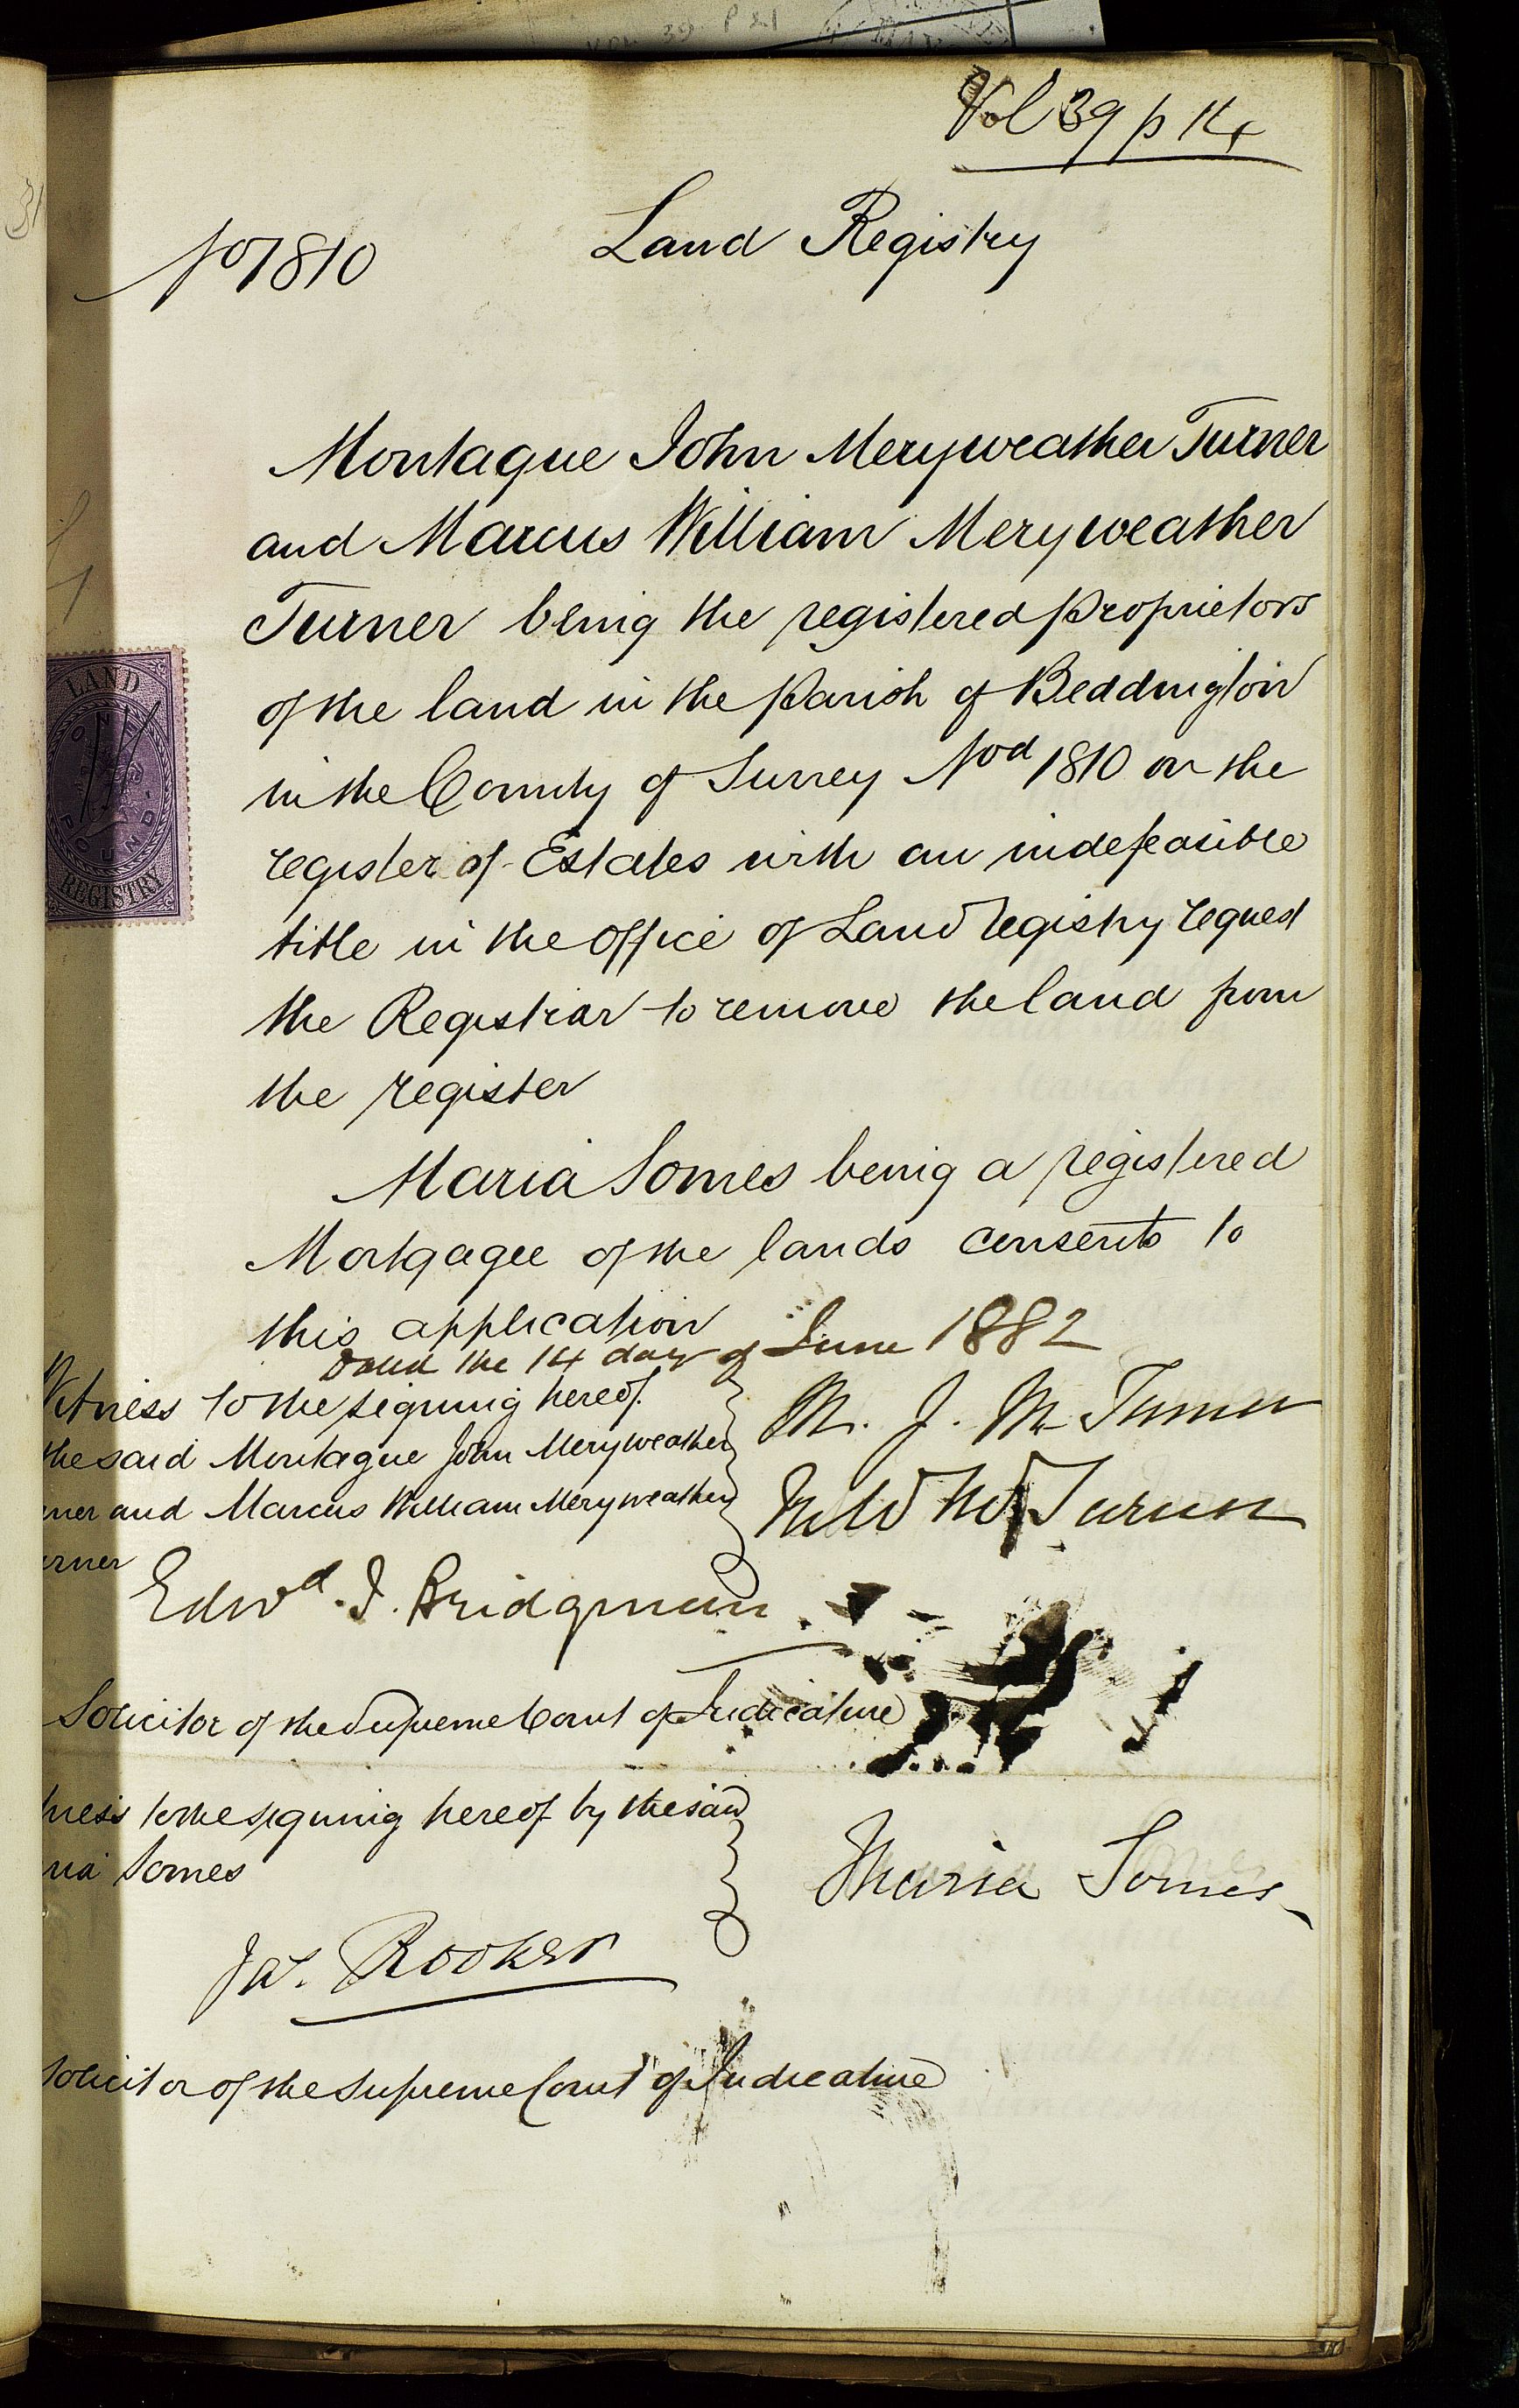 Vol 39 p 14
No 1810
Land Registry
Montague John Meryweather Turner
and Marcus William Meryweather
Turner being the registered proprietors
of the land in the Parish of Beddington
in the County of Surrey Nod 1810 on the
register of Estates with an indefeasible
title in the office of Land registry request
the Registrar to remove the land from
the register
Maria Somes being a registered
Mortgagee of the lands consents to
this application
Dated the 14 day of June 1882
Witness to the signing hereof
the said Montague John Meryweather
rner and Marcus William Meryweather
urner
M. J. M Turner
M W M Turner
Edwd. J. Bridgman
Solicitor of the Supreme Court of Judicature
tness to the signing hereof by the said
ria Somes
Maria Somes
Jas. Rooker
Solicitor of the Supreme Court of Judicature
LAND
ONE
POUND
REGISTRY